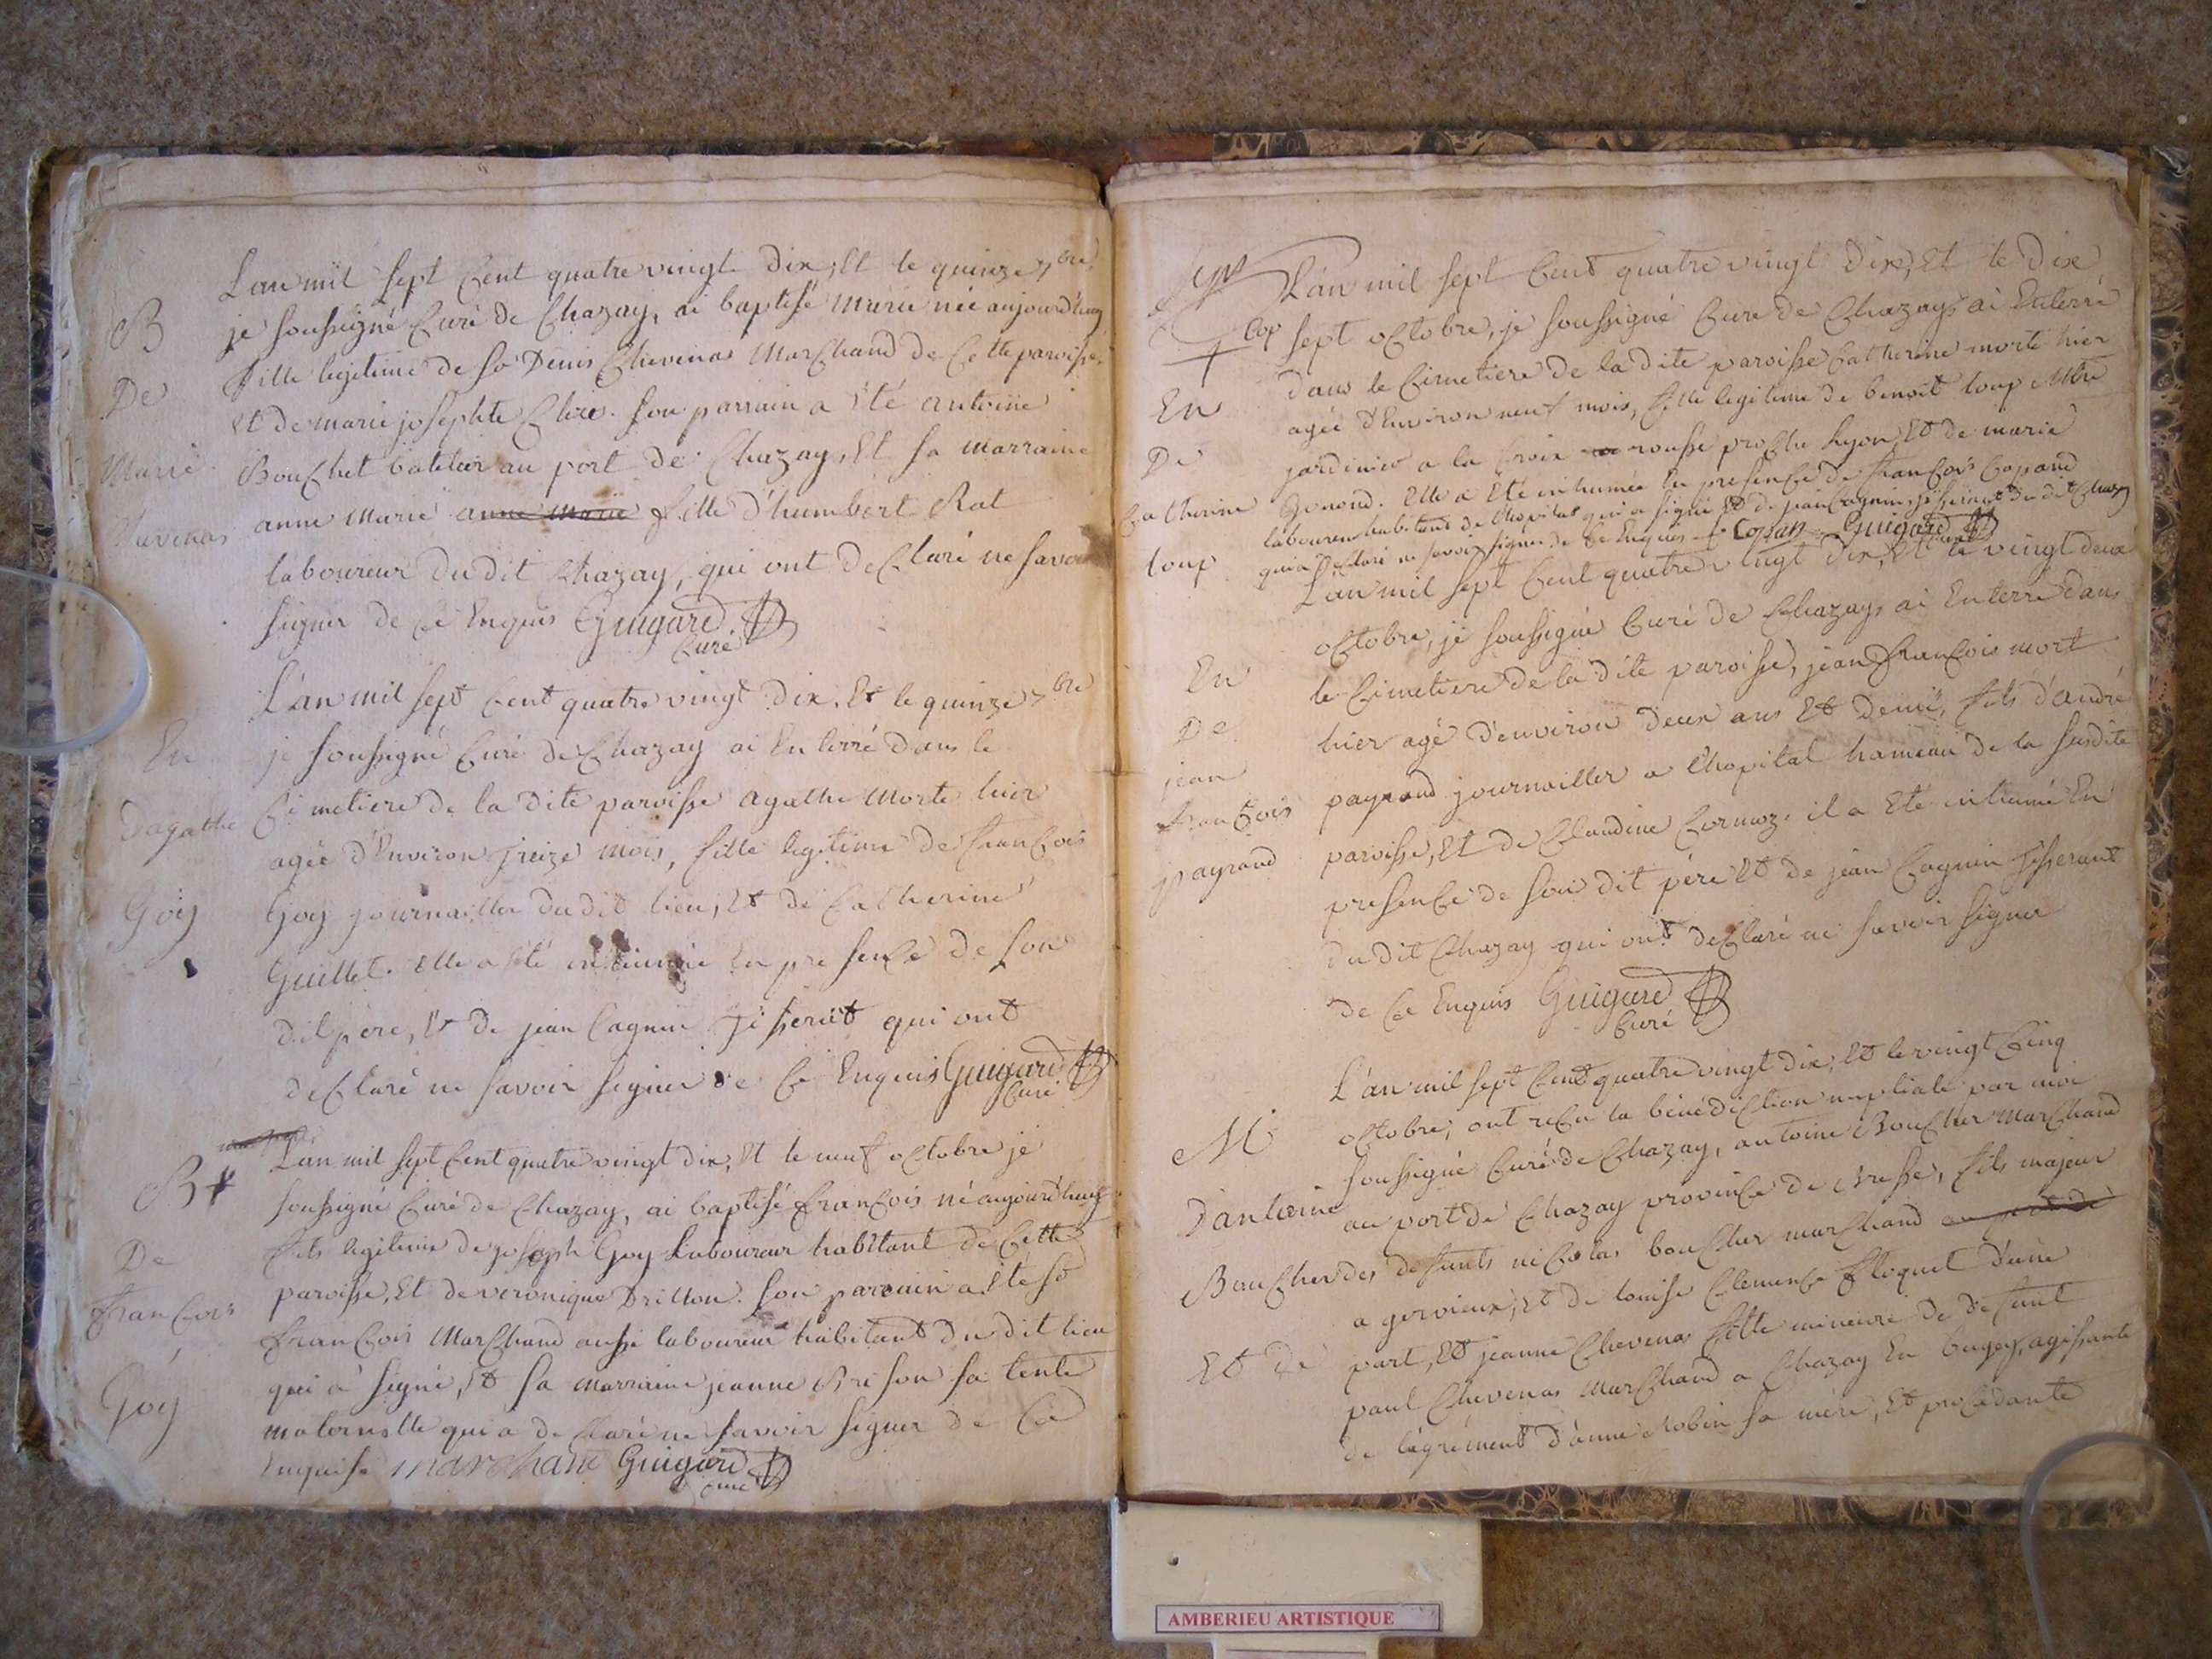 L'an mil sept Cent quatre vingt dix, Et le quinze 7bre
B
je soussigné Curé de Chazay, ai baptisé marie née aujourd'huy
fille legitime de so Denis Chevenas Marchand de Cette paroisse
De
Et de marie josephte Clere. son parrain a Eté antoine
Marie
Bouchet batelier au port de Chazay, Et sa marraine
Chevenas
anne marie anne marie fille d'humbert Rat
laboureur du dit Chazay, qui ont declaré ne savoir
signer de Ce Enquis Guigard
Curé
L'an mil sept Cent quatre vingt dix, Et le quinze 7bre
En
je soussigné Curé de Chazay ai Enterré dans le
D'agathe
Cimetiere de la dite paroisse agathe Morte hier
agée d'Environ treize mois, fille legitime de francois
Goy
Goy journailler du dit lieu, Et de Catherine
Guillet. Elle a été inhumée En presence de son
dit pere, Et de jean Cagnin tisserant qui ont
declaré ne savoir signer de Ce Enquis Guigard
Curé
L'an mil sept Cent quatre vingt dix, Et le neuf octobre je
B
soussigné Curé de Chazay, ai baptisé francois né aujourd'huy
De
fils legitime de joseph Goy Laboureur habitant de Cette
paroisse, Et de veronique Drillon. son parrain a Eté so
francois
francois Marchand aussi laboureur habitant du dit lieu
qui a signé, Et sa marraine jeanne Brison sa tente
Goy
maternelle qui a declaré ne savoir signer de Ce
Enquise marchand Guigard
curé
L'an mil sept Cent quatre vingt Dix, Et le Dix
Cop
sept octobre, je soussigné Curé de Chazay ai Enterré
dans le Cimetiere de la dite paroisse Catherine morte hier
En
agée d'Environ neuf mois, fille legitime de benoit loup Mtre
De
jardinier a la Croix rousse proche Lyon, Et de marie
Catherine
Gonond. Elle a Eté inhumée En presence de francois Copand
laboureur habitant de l'hopital qui a signé Et de jean Cagnin tisserant du dit Chazay
loup
qui a declaré ne savoir signer de Ce Enquis f. Copan Guigard
L'an mil sept Cent quatre vingt dix, Et le vingt deux
octobre, je soussigné Curé de Chazay ai Enterré dans
En
le Cimetiere de la dite paroisse, jean francois mort
De
hier agé d'environ deux ans Et demi, fils d'andré
jean
francois
payrand journailler a l'hopital hameau de la susdite
payrand
paroisse, Et de Claudine Cormoz. il a Eté inhumé En
presence de son dit pere Et de jean Cagnin tisserant
du dit Chazay qui ont declaré ne savoir signer
de Ce Enquis Guigard
Curé
L'an mil sept Cent quatre vingt dix, Et le vingt Cinq
octobre, ont reçu la bénédiction nuptiale par moi
M
soussigné Curé de Chazay, antoine Boucher Marchand
D'antoine
au port de Chazay province de Bresse, fils majeur
Boucher
des defunts nicolas boucher marchand au port de
a gervieux, Et de louise Clemence floquet d'une
Et de
part, Et jeanne Chevenas fille mineure de defunt
paul Chevenas Marchand a Chazay En bugey, agissante
de l'agrément d'anne Robin sa mere, Et procedante
AMBERIEU ARTISTIQUE